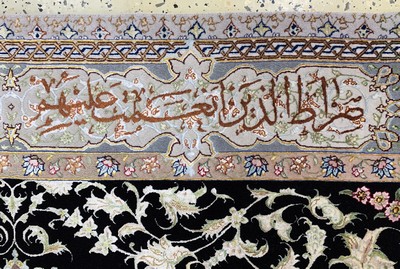 صراط الذين انعمت عليهم